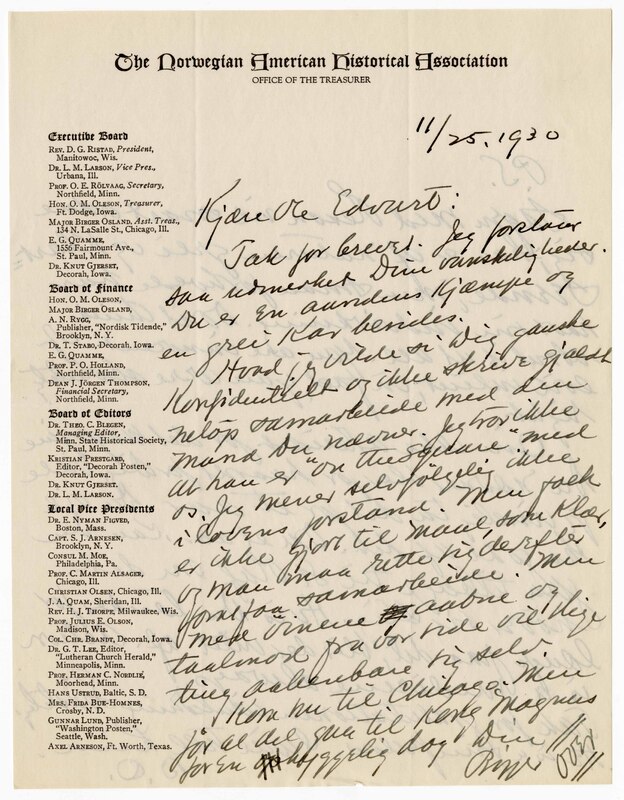 The Norwegian American Historical Association
OFFICE OF THE TREASURER
11/25, 1930
Executive Board
REV. D. G. RISTAD, President,
Manitowoc, Wis.
DR. L. M. LARSON, Vice Pres.,
Urbana, Ill.
PROF. O. E. RÖLVAAG, Secretary,
Northfield, Minn.
HON. O. M. OLESON, Treasurer,
Ft. Dodge, Iowa.
MAJOR BIRGER OSLAND, Asst. Treas.,
134 N. LaSalle St., Chicago, Ill.
E. G. QUAMME,
1556 Fairmount Ave.,
St. Paul, Minn.
DR. KNUT GJERSET,
Decorah, Iowa.
Board of Finance
HON. O. M. OLESON,
MAJOR BIRGER OSLAND,
A. N. RYGG,
Publisher, "Nordisk Tidende,"
Brooklyn, N. Y.
DR. T. STABO, Decorah, Iowa.
E. G. QUAMME,
PROF. P. O. HOLLAND,
Northfield, Minn.
DEAN J. JÖRGEN THOMPSON,
Financial Secretary,
Northfield, Minn.
Board of Editors
DR. THEO. C. BLEGEN,
Managing Editor,
Minn. State Historical Society,
St. Paul, Minn.
KRISTIAN PRESTGARD,
Editor, "Decorah Posten,"
Decorah, Iowa.
DR. KNUT GJERSET.
DR. L. M. LARSON.
Local Vice Presidents
DR. E. NYMAN FIGVED,
Boston, Mass.
CAPT. S. J. ARNESEN,
Brooklyn, N. Y.
CONSUL M. MOE,
Philadelphia, Pa.
PROF. C. MARTIN ALSAGER,
Chicago, Ill.
CHRISTIAN OLSEN, Chicago, Ill.
J. A. QUAM, Sheridan, Ill.
REV. H. J. THORPE, Milwaukee, Wis.
PROF. JULIUS E. OLSON,
Madison, Wis.
COL. CHR. BRANDT, Decorah, Iowa.
DR. G. T. LEE, Editor,
"Lutheran Church Herald,"
Minneapolis, Minn.
PROF. HERMAN C. NORDLIE,
Moorhead, Minn.
HANS USTRUD, Baltic, S. D.
MRS. FRIDA BUE-HOMNES,
Crosby, N. D.
GUNNAR LUND, Publisher,
"Washington Posten,"
Seattle, Wash.
AXEL ARNESON, Ft. Worth, Texas.
Kjære Ole Edvart:
Tak for brevet. Jeg forstaar
saa udmerket Dine vanskeligheder.
Du er En aandens Kjæmpe og
en grei Kar besides.
Hvad jeg vilde si Dig ganske
Konfidentielt og ikke skrive gjaldt
netop samarbeide med den
mand Du nævner. Jeg tror ikke
at han er "on the square" med
os. Jeg mener selvfølgelig ikke
i Lovens forstand. Men folk
er ikke gjort til maal, som Klær,
og man maa rette sig derefter
forsaavidt samarbeide. Men
med öinene aabne og
taalmod fra vor side vil lige
ting aabenbare sig selv.
Kom nu til Chicago. Men
for al del gaa til Kong Magnus
for en hyggelig dag Din
Birger
OVER